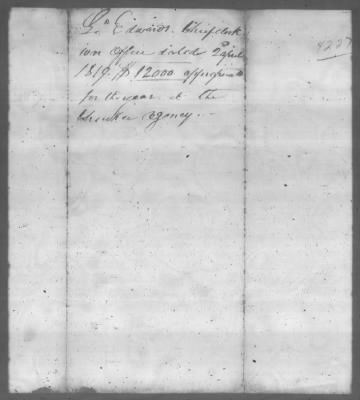 Lr Edwards. Chief clerk
war Office dated 2 april
1819. $12000 appropriated
for the year at the
Cherokee agency. -